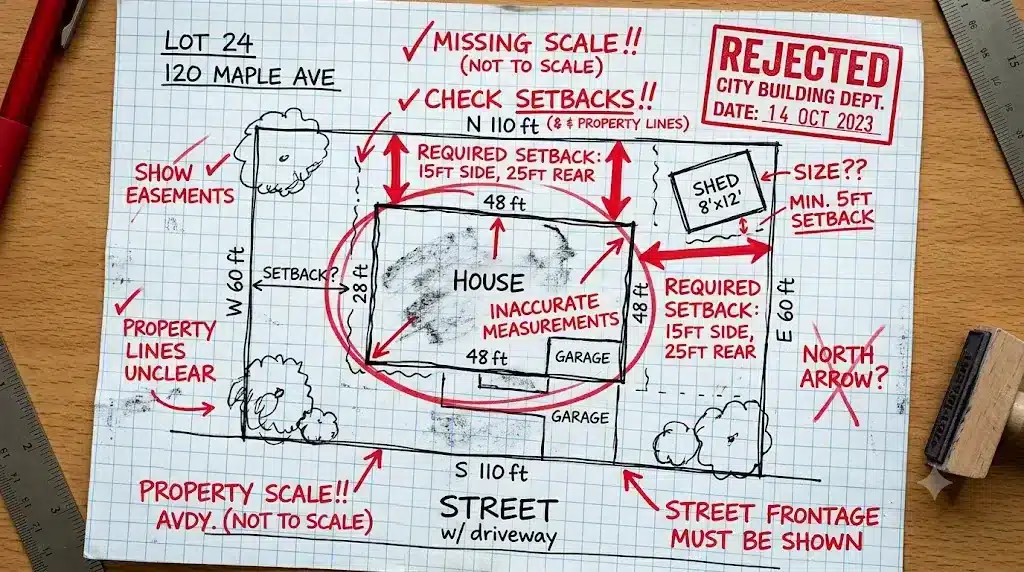 LOT 24
120 MAPLE AVE
✓ MISSING SCALE!!
(NOT TO SCALE)
✓ CHECK SETBACKS!!
(& & PROPERTY LINES)
REJECTED
CITY BUILDING DEPT.
DATE: 14 OCT 2023
N 110 ft
REQUIRED SETBACK:
15FT SIDE, 25FT REAR
SHOW ✓
EASEMENTS
SHED
8'x12'
SIZE??
MIN. 5FT
SETBACK
48 ft
W 60 ft
SETBACK?
28 ft
HOUSE
INACCURATE
MEASUREMENTS
48 ft
REQUIRED
SETBACK:
15FT SIDE,
25FT REAR
E 60 ft
✓
PROPERTY
LINES
UNCLEAR
48 ft
GARAGE
NORTH
ARROW?
GARAGE
S 110 ft
PROPERTY SCALE!!
AVDY. (NOT TO SCALE)
STREET
w/ driveway
STREET FRONTAGE
MUST BE SHOWN